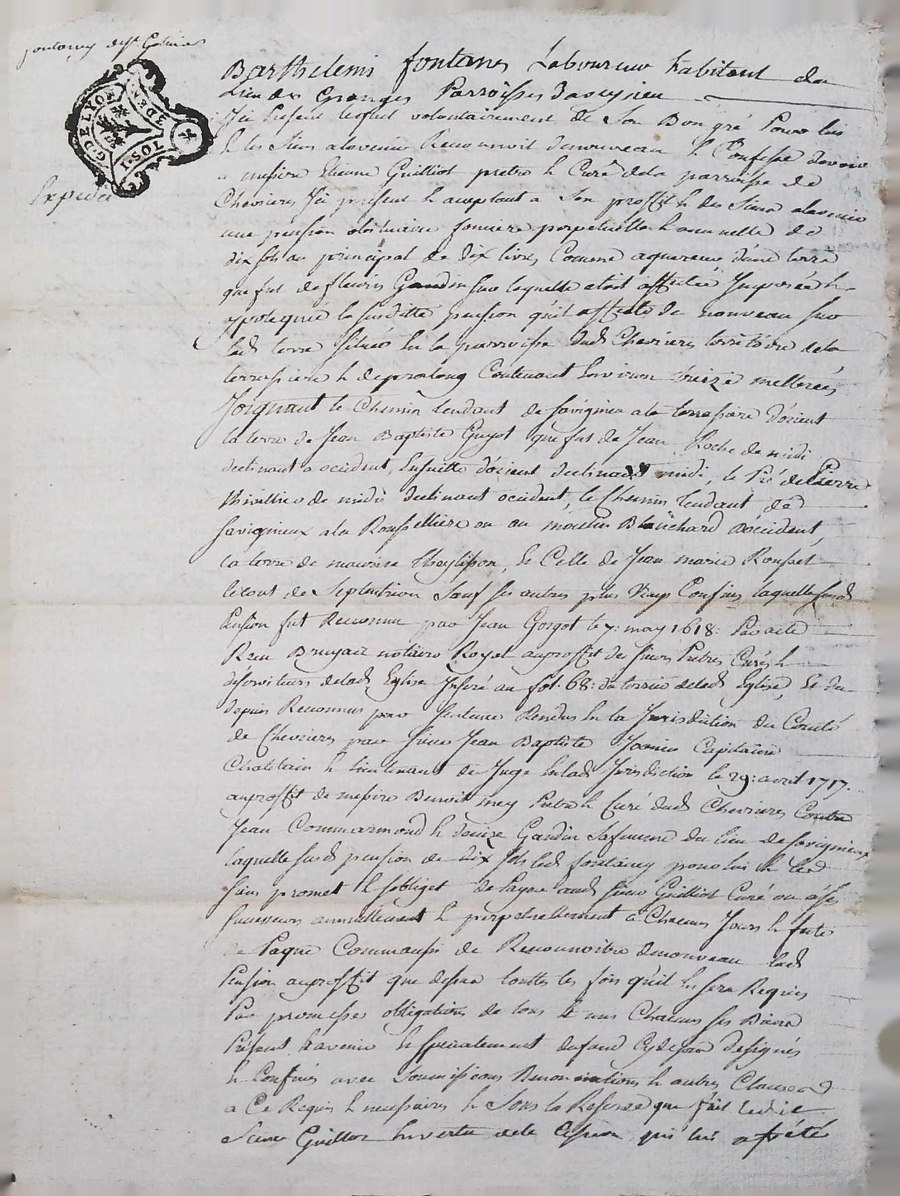 G. DE LYON
10 S. 1 3 D.
Expedié
Barthelemi fontanes Laboureur habitant du
Lieu des Granges Parroisse
Icy present lequel volontairement de Son Bon gré Pour luy
& les Siens alavenir Reconnoit denouveau & Confesse devoir
a messire Etienne Guilliot pretre & Curé dela parroisse de
Chevrieres Icy present & aceptant a Son proffit & des Siens alavenir
une pension obituaire fonciere perpetuelle & annuelle de
dix sols au principal de dix livres Comme aquereur d'une terre
que fut de fleuris Gandin sur laquelle etoit affectée Imposée &
ypotequée la susditte pension qu'il affecte de nouveau sur
lad terre Située en la parroisse dud Chevrieres territoire dela
terrassiere & Contenant Environ treize metterées
Joignant le Chemin tendant de savignieu ala terrassiere d'orient
la terre de Jean Baptiste Guyot que fut de Jean Roche de midi
declinant a occident, Ensuitte d'orient declinant midi, le Pré de Pierre
de midi declinant occident, le Chemin tendant de
Savignieux ala Rousselliere ou au moulin Blanchard occident,
la terre de maurice & Celle de Jean marie Ronset
letout de Septentrion Sauf ses autres plus vrays Confins laquelle susd
Pension fut Reconnue par Jean Gorgot le 7: may 1618: Par acte
Receu Bruyair notaire Royal auproffit des sieurs Pretres Curés &
desserviteurs delad Eglise Inseré au fol: 68: du terrier delad Eglise, &
depuis Reconnue par sentence Rendue En la Jurisdiction du Comté
de Chevrieres par sieur Jean Baptiste Capitaine
Chatelain & Lieutenant de Juge Enlad Jurisdiction le 29: avril 1717.
auproffit de messire Benoit mey Pretre & Curé dud Chevrieres Contre
Jean Commarmond & denize Gandin Safemme du Lieu de Savignieux
laquelle susd pension de dix sols led fontaney pour lui & les
Siens promet & soblige de Payer aud sieur Guilliot Curé ou asses
Successeurs annuellement & perpetuellement a Chacuns Jours & feste
de Paque Commaussi de Reconnoitre denouveau lad
Pension auproffit que dessus touttes les fois qu'il En sera Requis
Par promesses obligations de tous & uns Chacuns ses Biens
Present & avenir & specialement dufond Cydessus designés
& Confinés avec Soumissions Renonciations & autres Clauses
a Ce Requis & necessaires & Sous la Reserve que fait ledit
Sieur Guilliot Envertu dela Cession qui lui a